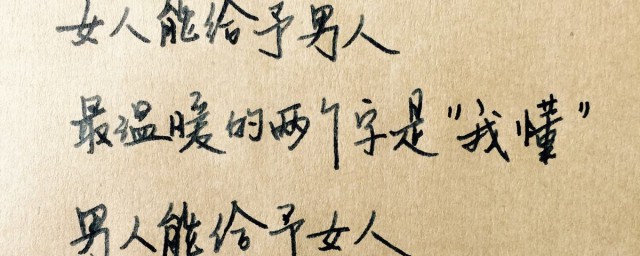 女人能给予男人
最温暖的两个字是"我懂"
男人能给予女人